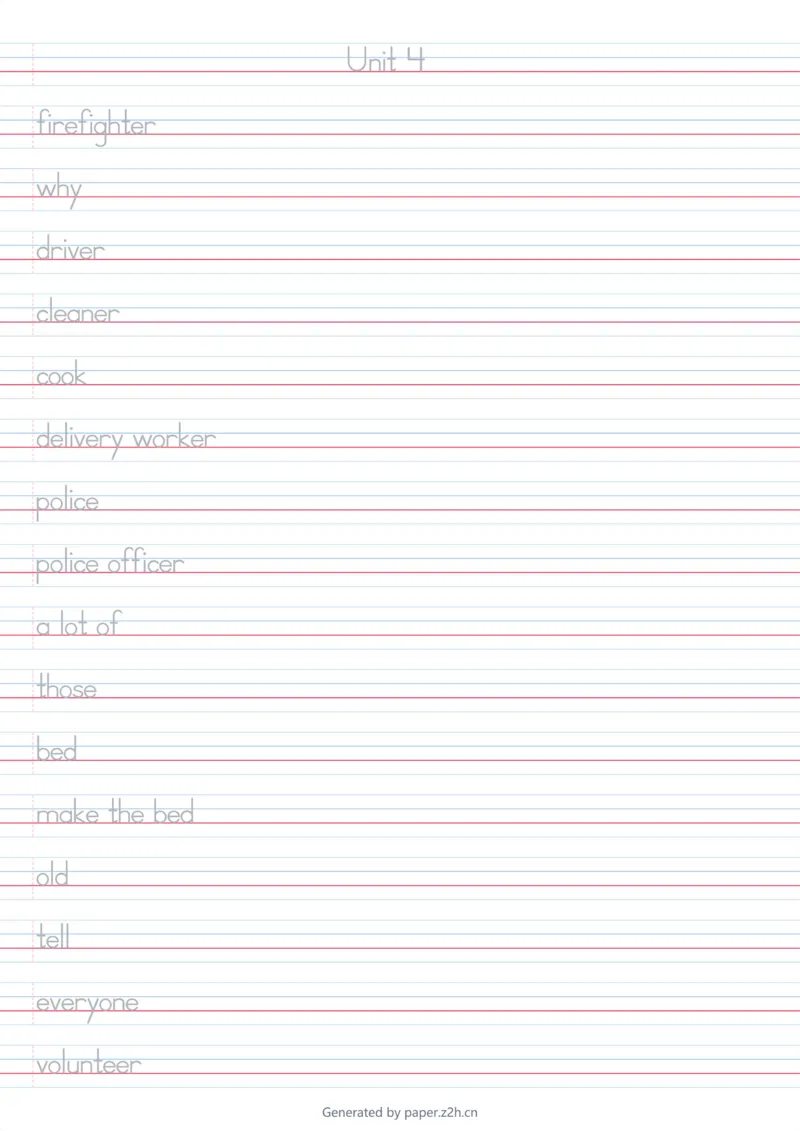 Unit 4
firefighter
why
driver
cleaner
cook
delivery worker
police
police officer
a lot of
those
bed
make the bed
old
tell
everyone
volunteer
Generated by paper.z2h.cn